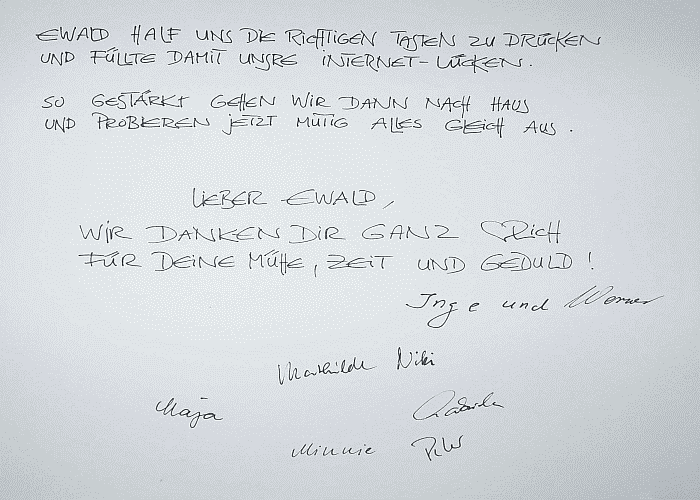 EWALD HALF UNS DIE RICHTIGEN TASTEN ZU DRÜCKEN
UND FÜLLTE DAMIT UNSRE INTERNET-LÜCKEN.
SO GESTÄRKT GEHEN WIR DANN NACH HAUS
UND PROBIEREN JETZT MUTIG ALLES GLEICH AUS.
LIEBER EWALD,
WIR DANKEN DIR GANZ ♡LICH
FÜR DEINE MÜHE, ZEIT UND GEDULD!
Inge und Werner
Mathilde Niki
Maja
Minnie